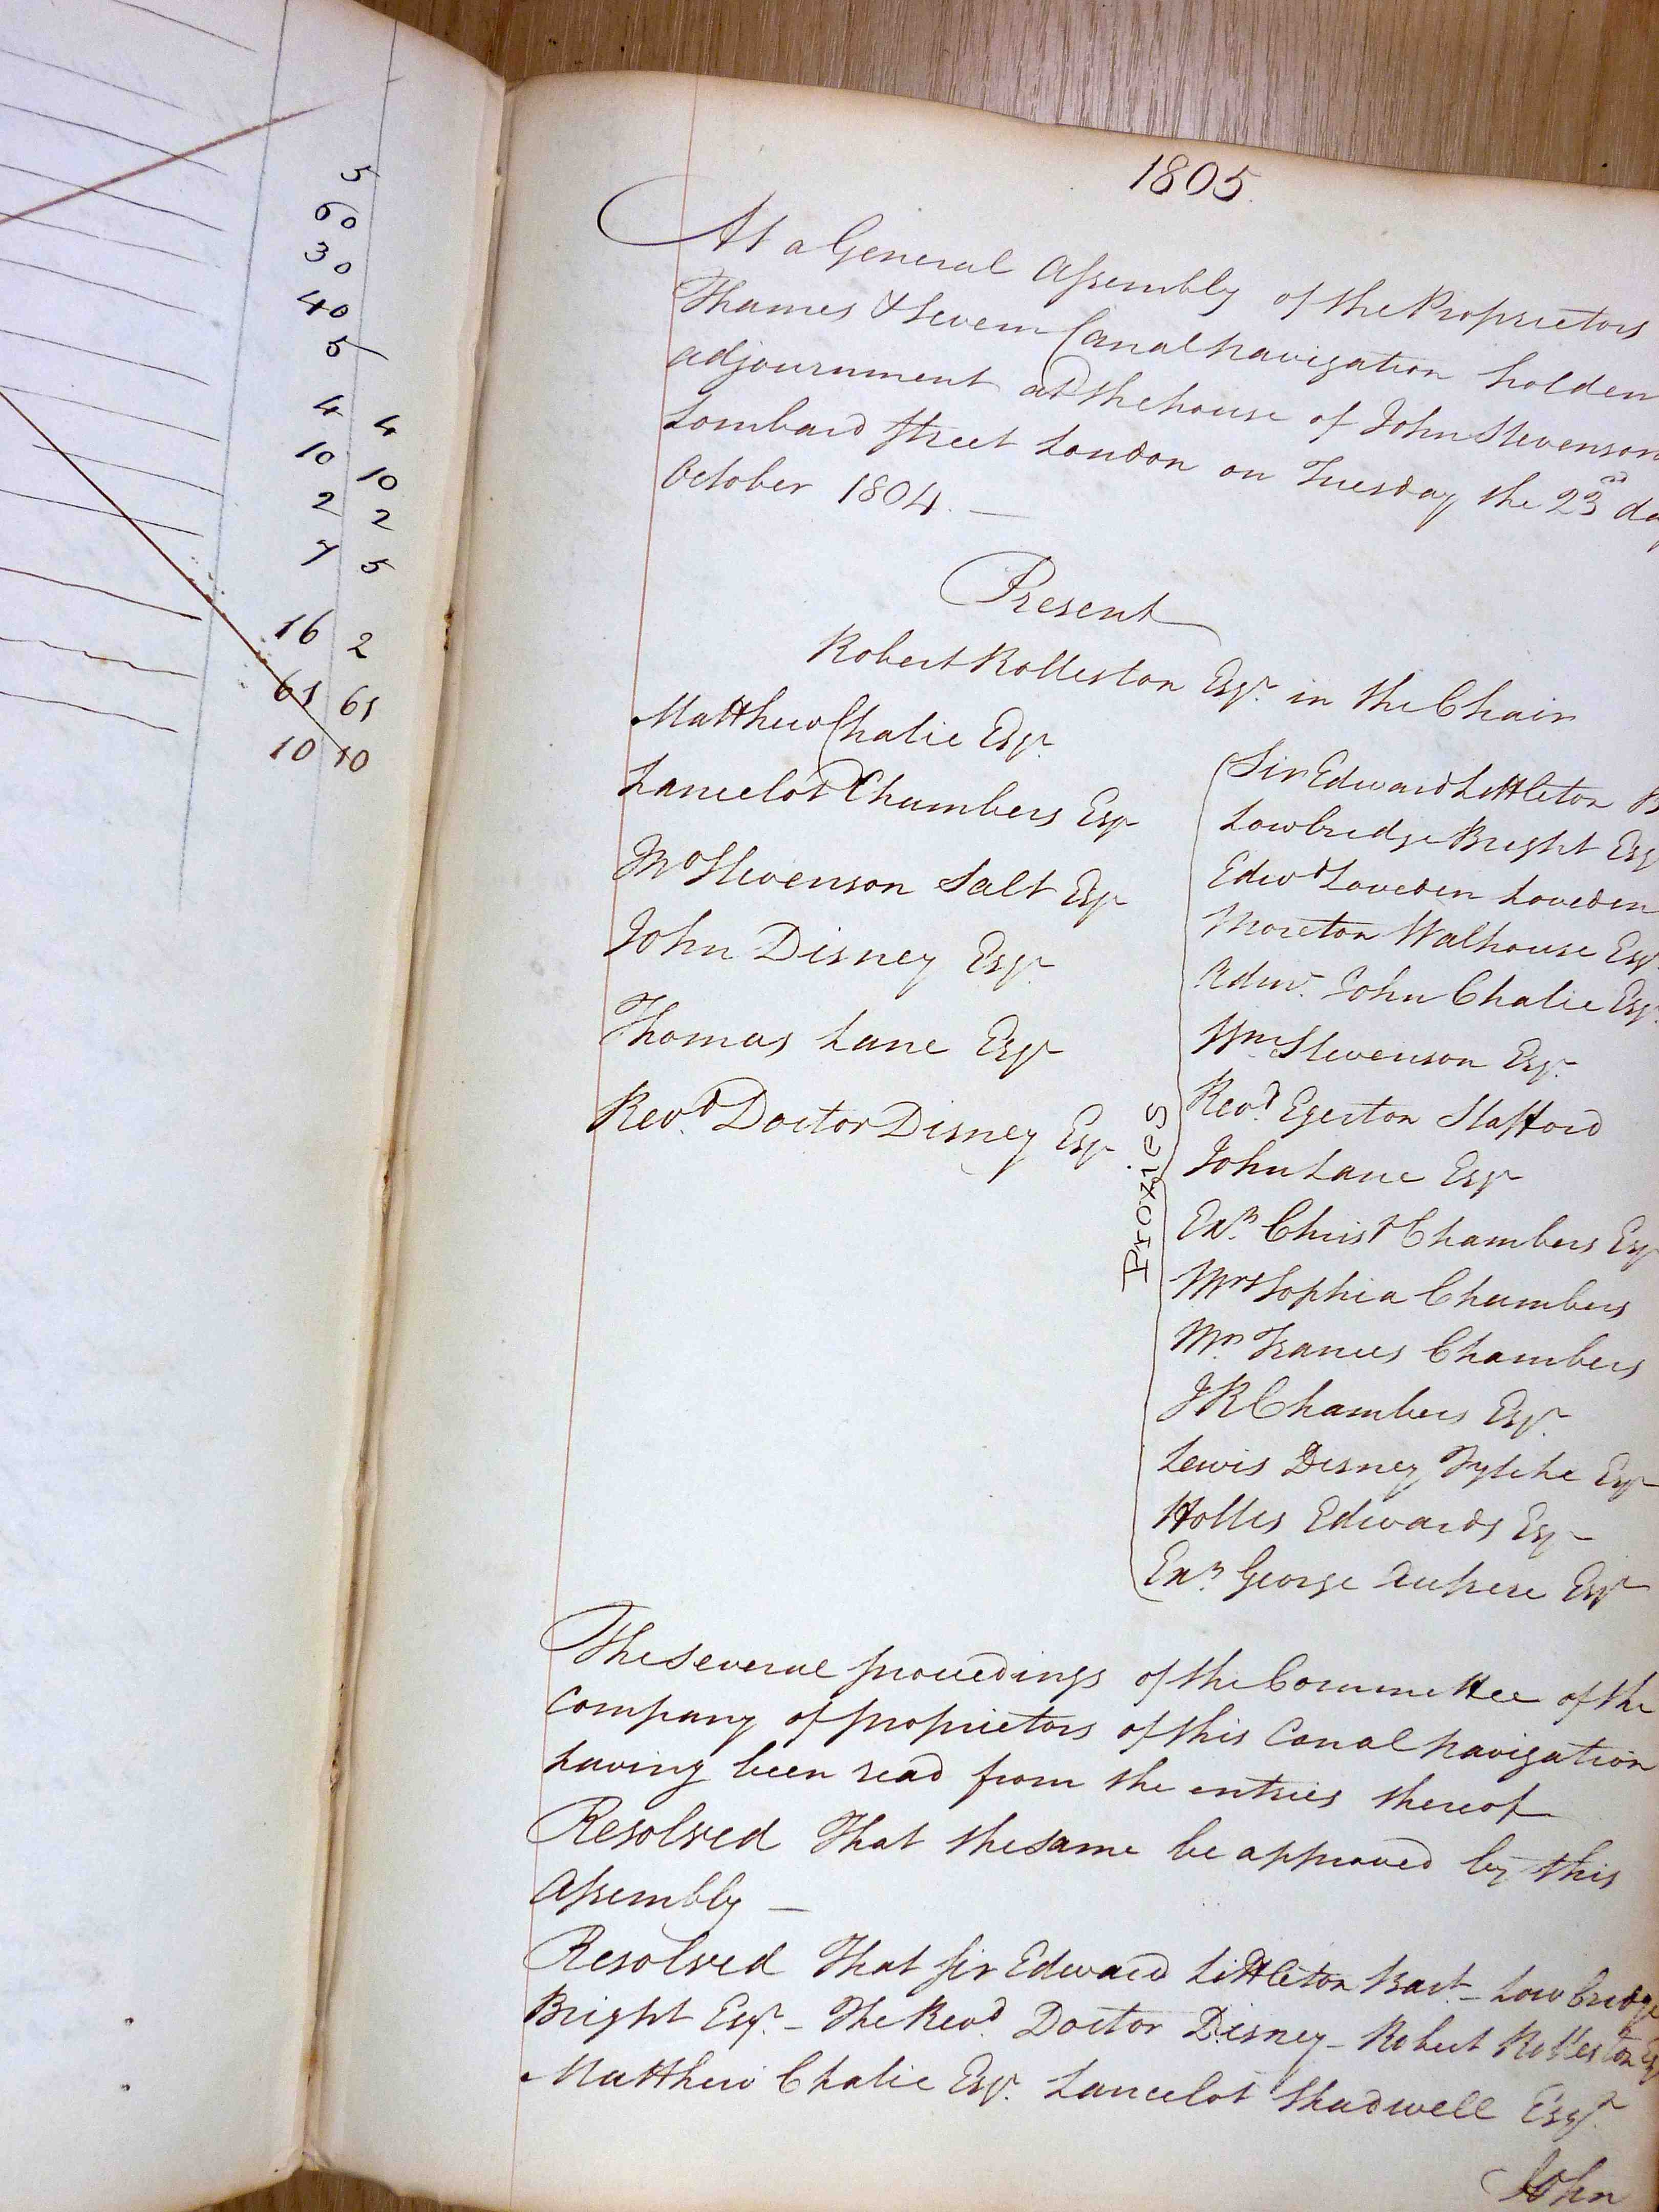 5
60
30
40
5
4 4
10 10
2 2
7 5
16 2
61 61
10 10
1805.
At a General Assembly of the Proprietors
Thames & Severn Canal Navigation holden
adjournment at the house of John Stevenson
Lombard Street London on Tuesday the 23rd da
October 1804. —
Present
Robert Rolleston Esqr. in the Chair
Matthew Chalie Esqr.
Lancelot Chambers Esqr
Jno Stevenson Salt Esqr
John Disney Esqr.
Thomas Lane Esqr
Revd. Doctor Disney Esqr
Proxies
Sir Edward Littleton B
Lowbridge Bright Esqr
Edwd Loveden Loveden
Moreton Walhouse Esqr.
Admr. John Chalie Esqr.
Wm Stevenson Esqr.
Revd. Egerton Stafford
John Lane Esqr
Exrs. Christ Chambers Esqr
Mrs Sophia Chambers
Mrs. Frances Chambers
J R Chambers Esqr.
Lewis Disney Fytche Esqr
Holles Edwards Esq –
Exrs. George Aufrere Esqr
The several proceedings of the Committee of the
Company of proprietors of this Canal Navigation
having been read from the entries thereof
Resolved That the same be approved by this
Assembly —
Resolved That Sir Edward Littleton Bart – Lowbridge
Bright Esqr. – The Revd. Doctor Disney – Robert Rolleston Esq
Matthew Chalie Esqr. Lancelot Shadwell Esqr.
John